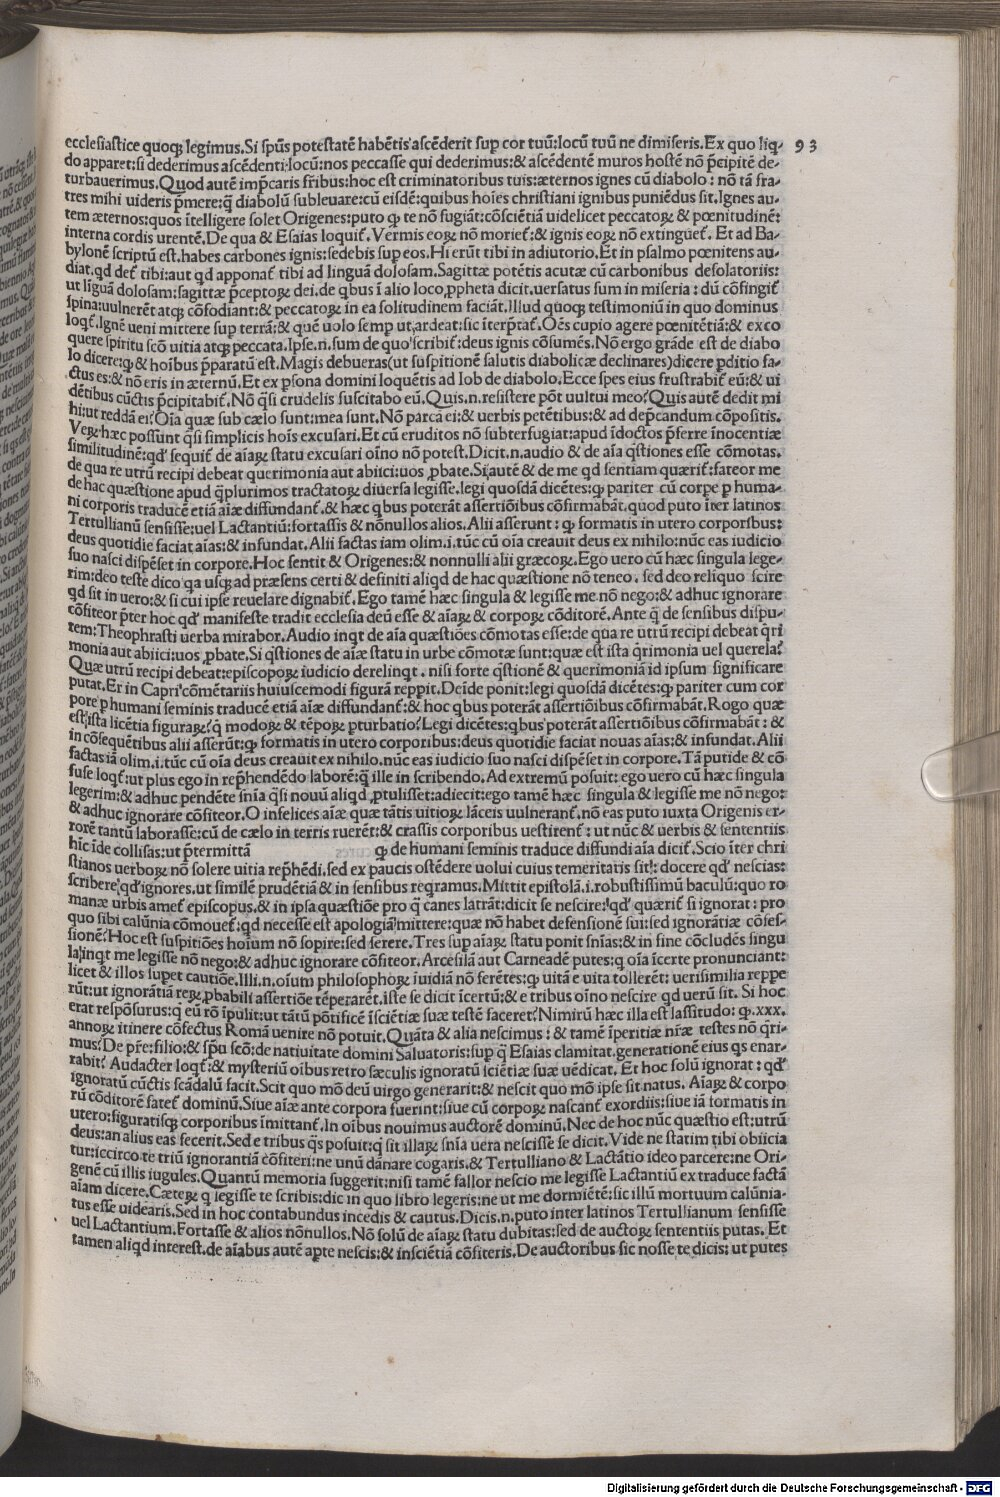 93
ecclesiastice quoqꝫ legimus.Si spūs potestatē habētis ascēderit sup cor tuū:locū tuū ne dimiseris.Ex quo liq-
do apparet:si dederimus ascēdenti locū:nos peccasse qui dederimus:& ascēdentē muros hostē nō p̄cipitē de-
turbauerimus.Quod autē imp̄caris fr̄ibus:hoc est criminatoribus tuis:æternos ignes cū diabolo: nō tā fra-
tres mihi uideris p̄mere:q̄ diabolū subleuare:cū eisdē:quibus hoīes christiani ignibus puniēdus sit.Ignes au-
tem æternos:quos ītelligere solet Origenes:puto qꝙ te nō fugiāt:cōsciētiā uidelicet peccatoꝝ & pœnitudinē:
interna cordis urentē.De qua & Esaias loquit᷑.Vermis eoꝝ nō moriet᷑:& ignis eoꝝ nō extinguet᷑. Et ad Ba-
bylonē scriptū est.habes carbones ignis:sedebis sup eos.Hi erūt tibi in adiutorio.Et in psalmo pœnitens au-
diat.qd det᷑ tibi:aut qd apponat᷑ tibi ad linguā dolosam.Sagittæ potētis acutæ cū carbonibus desolatoriis:
ut līguā dolosam:sagittæ p̄ceptoꝝ dei.de qbus ī alio loco ꝓpheta dicit.uersatus sum in miseria: dū cōfingit᷑
spina:uulnerēt atqꝫ cōfodiant:& peccatoꝝ in ea solitudinem faciāt.Illud quoqꝫ testimoniū in quo dominus
loqt᷑.Ignē ueni mittere sup terrā:& quē uolo semp ut ardeat:sic īterp̄tat᷑.Oēs cupio agere pœnitētiā:& exco
quere spiritu scō uitia atqꝫ peccata.Ipse.n.sum de quo scribit᷑:deus ignis cōsumēs.Nō ergo grāde est de diabo
lo dicere:ꝙ & hoībus p̄paratū est.Magis debueras(ut suspitionē salutis diabolicæ declinares)dicere ꝑditio fa-
ctus es:& nō eris in æternū.Et ex ꝑsona domini loquētis ad Iob de diabolo.Ecce spes eius frustrabit᷑ eū:& ui
dētibus cūctis p̄cipitabit᷑.Nō q̄si crudelis suscitabo eū.Quis.n.resistere pōt uultui meo?Quis autē dedit mi
hi:ut reddā ei?Oīa quæ sub cælo sunt:mea sunt.Nō parcā ei:& uerbis petētibus:& ad dep̄candum cōpositis.
Veꝝ hæc possunt q̄si simplicis hoīs excusari.Et cū eruditos nō subterfugiat:apud īdoctos p̄ferre īnocentiæ
similitudinē:qd sequit᷑ de aīaꝝ statu excusari oīno nō potest.Dicit.n.audio & de aīa q̄stiones esse cōmotas.
de qua re utrū recipi debeat querimonia aut abiici:uos ꝓbate.Si autē & de me qd sentiam quærit᷑:fateor me
de hac quæstione apud q̄plurimos tractatoꝝ diuersa legisse.legi quosdā dicētes:ꝙ pariter cū corpe ꝑ huma-
ni corporis traducē etiā aīæ diffundant᷑.& hæc qbus poterāt assertiōibus cōfirmabāt.quod puto īter latinos
Tertullianū sensisse:uel Lactantiū:fortassis & nōnullos alios.Alii asserunt: ꝙ formatis in utero corporibus:
deus quotidie faciat aīas:& infundat.Alii factas iam olim.i.tūc cū oīa creauit deus ex nihilo:nūc eas iudicio
suo nasci dispēset in corpore.Hoc sentit & Origenes:& nonnulli alii græcoꝝ.Ego uero cū hæc singula lege-
rim:deo teste dico qa usqꝫ ad præsens certi & definiti aliqd de hac quæstione nō teneo. sed deo reliquo scire
qd sit in uero:& si cui ipse reuelare dignabit᷑.Ego tamē hæc singula & legisse me nō nego:& adhuc ignorare
cōfiteor p̄ter hoc qd manifeste tradit ecclesia deū esse & aīaꝝ & corpoꝝ cōditorē.Ante q̄ de sensibus dispu-
tem:Theophrasti uerba mirabor.Audio inqt de aīa quæstiōes cōmotas esse:de qua re utrū recipi debeat q̄ri
monia aut abiici:uos ꝓbate.Si q̄stiones de aīæ statu in urbe cōmotæ sunt:quæ est ista q̄rimonia uel querela?
Quæ utrū recipi debeat:episcopoꝝ iudicio derelinqt. nisi forte q̄stionē & querimoniā id ipsum significare
putat.Er in Capri cōmētariis huiuscemodi figurā reppit.Deīde ponit:legi quosdā dicētes:ꝙ pariter cum cor
pore ꝑ humani seminis traducē etiā aīæ diffundant᷑:& hoc qbus poterāt assertiōibus cōfirmabāt.Rogo quæ
est ista licētia figuraꝝ?q̄ modoꝝ & tēpoꝝ ꝑturbatio?Legi dicētes:qbus poterāt assertiōibus cōfirmabāt: &
in cōsequētibus alii asserūt:ꝙ formatis in utero corporibus:deus quotidie faciat nouas aīas:& infundat.Alii
factas iā olim.i.tūc cū oīa deus creauit ex nihilo.nūc eas iudicio suo nasci dispēset in corpore.Tā putide & cō
fuse loqt᷑:ut plus ego in rep̄hendēdo laborē:q̄ ille in scribendo.Ad extremū posuit:ego uero cū hæc singula
legerim:& adhuc pendēte snīa q̄si nouū aliqd ꝓtulisset:adiecit:ego tamē hæc singula & legisse me nō nego:
& adhuc ignorare cōfiteor.O infelices aīæ quæ tātis uitioꝝ lāceis uulnerant᷑.nō eas puto iuxta Origenis er-
rorē tantū laborasse:cū de cælo in terris ruerēt:& crassis corporibus uestirent᷑: ut nūc & uerbis & sententiis
hīc īde collisas:ut p̄termittā ꝙ de humani seminis traduce diffundi aīa dicit᷑.Scio īter chri
stianos uerboꝝ nō solere uitia rep̄hēdi.sed ex paucis ostēdere uolui cuius temeritatis sit:docere qd nescias:
scribere qd ignores.ut similē prudētiā & in sensibus reqramus.Mittit epistolā.i.robustissimū baculū:quo ro
manæ urbis amet᷑ episcopus.& in ipsa quæstiōe pro q̄ canes latrāt:dicit se nescire:qd quærit᷑ si ignorat: pro
quo sibi calūnia cōmouet᷑:qd necesse est apologiā mittere:quæ nō habet defensionē sui:sed ignorātiæ cōfes-
sionē?Hoc est suspitiōes hoīum nō sopire:sed serere.Tres sup aīaꝝ statu ponit snīas:& in fine cōcludēs singu
la inqt me legisse nō nego:& adhuc ignorare cōfiteor.Arcesilā aut Carneadē putes:q oīa īcerte pronunciant:
licet & illos supet cautiōe.Illi.n.oīum philosophoꝝ īuidiā nō ferētes:ꝙ uitā e uita tollerēt: uerisimilia reppe
rūt:ut ignorātiā reꝝ ꝓbabili assertiōe tēperarēt.iste se dicit īcertū:& e tribus oīno nescire qd uerū sit. Si hoc
erat respōsurus:q̄ eū rō īpulit:ut tātū pōtificē īsciētiæ suæ testē faceret?Nimirū hæc illa est lassitudo: ꝙ.xxx.
annoꝝ itinere cōfectus Romā uenire nō potuit.Quāta & alia nescimus: & tamē īperitiæ nr̄æ testes nō q̄ri-
mus?De pr̄e:filio:& spū scō:de natiuitate domini Saluatoris:sup q̄ Esaias clamitat.generationē eius qs enar-
rabit? Audacter loqt᷑:& mysteriū oībus retro sæculis ignoratū sciētiæ suæ uēdicat. Et hoc solū ignorat: qd
ignoratū cūctis scādalū facit.Scit quo mō deū uirgo generarit:& nescit quo mō ipse sit natus. Aīaꝝ & corpo
rū cōditorē fatet᷑ dominū.Siue aīæ ante corpora fuerint:siue cū corpoꝝ nascant᷑ exordiis:siue iā formatis in
utero:figuratisqꝫ corporibus īmittant᷑.In oībus nouimus auctorē dominū.Nec de hoc nūc quæstio est:utrū
deus:an alius eas fecerit.Sed e tribus q̄s posuit:q̄ sit illaꝝ snīa uera nescisse se dicit.Vide ne statim tibi obiicia
tur:iccirco te triū ignorantiā cōfiteri:ne unū dānare cogaris.& Tertulliano & Lactātio ideo parcere:ne Ori-
genē cū illis iugules.Quantū memoria suggerit:nisi tamē fallor nescio me legisse Lactantiū ex traduce factā
aīam dicere.Cæteꝝ q̄ legisse te scribis:dic in quo libro legeris:ne ut me dormiētē:sic illū mortuum calūnia-
tus esse uidearis.Sed in hoc contabundus incedis & cautus.Dicis.n.puto inter latinos Tertullianum sensisse
uel Lactantium.Fortasse & alios nōnullos.Nō solū de aīaꝝ statu dubitas:sed de auctoꝝ sententiis putas. Et
tamen aliqd interest.de aīabus autē apte nescis:& insciētiā cōfiteris.De auctoribus sic nosse te dicis: ut putes
Digitalisierung gefördert durch die Deutsche Forschungsgemeinschaft - DFG